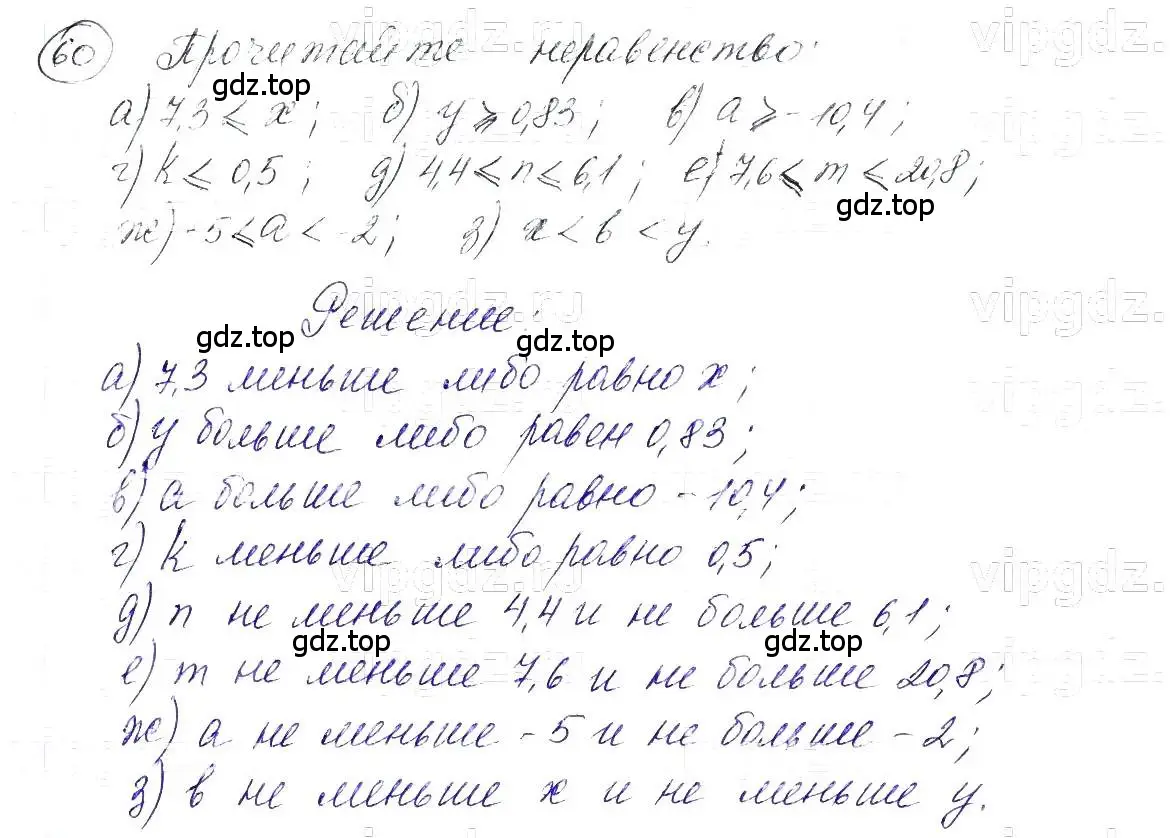 60 Прочитайте неравенство:
а) 7,3 ⩽ x; б) y ⩾ 0,83; в) a ⩾ -10,4;
г) k ⩽ 0,5; д) 4,4 ⩽ n ⩽ 6,1; е) 7,6 ⩽ m ⩽ 20,8;
ж) -5 ⩽ a < -2; з) x < b < y.
Решение:
а) 7,3 меньше либо равно x;
б) y больше либо равен 0,83;
в) a больше либо равно -10,4;
г) k меньше либо равно 0,5;
д) n не меньше 4,4 и не больше 6,1;
е) m не меньше 7,6 и не больше 20,8;
ж) a не меньше -5 и не больше -2;
з) в не меньше x и не меньше y.
gdz.top
gdz.top
gdz.top
gdz.top
gdz.top
gdz.top
vipgdz.ru
vipgdz.
vipgdz.ru
vipgdz.
vipgdz.ru
vipgdz.